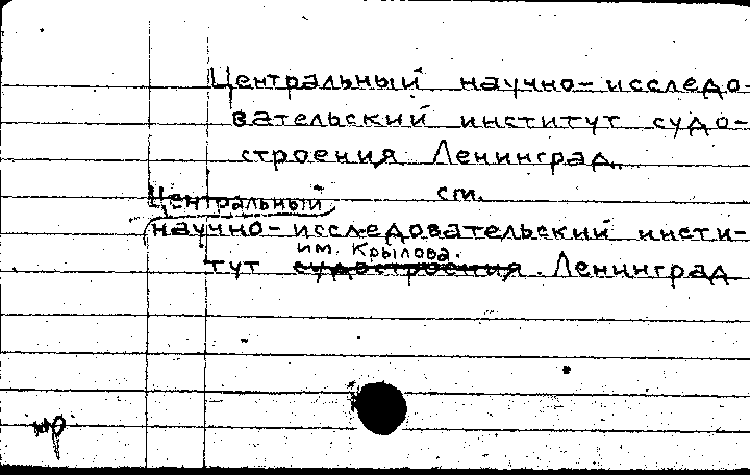 Центральный научно-исследо-
вательский институт судо-
строения Ленинград.
см.
Центральный
научно-исследовательский инсти-
им. Крылова.
тут судостроения. Ленинград